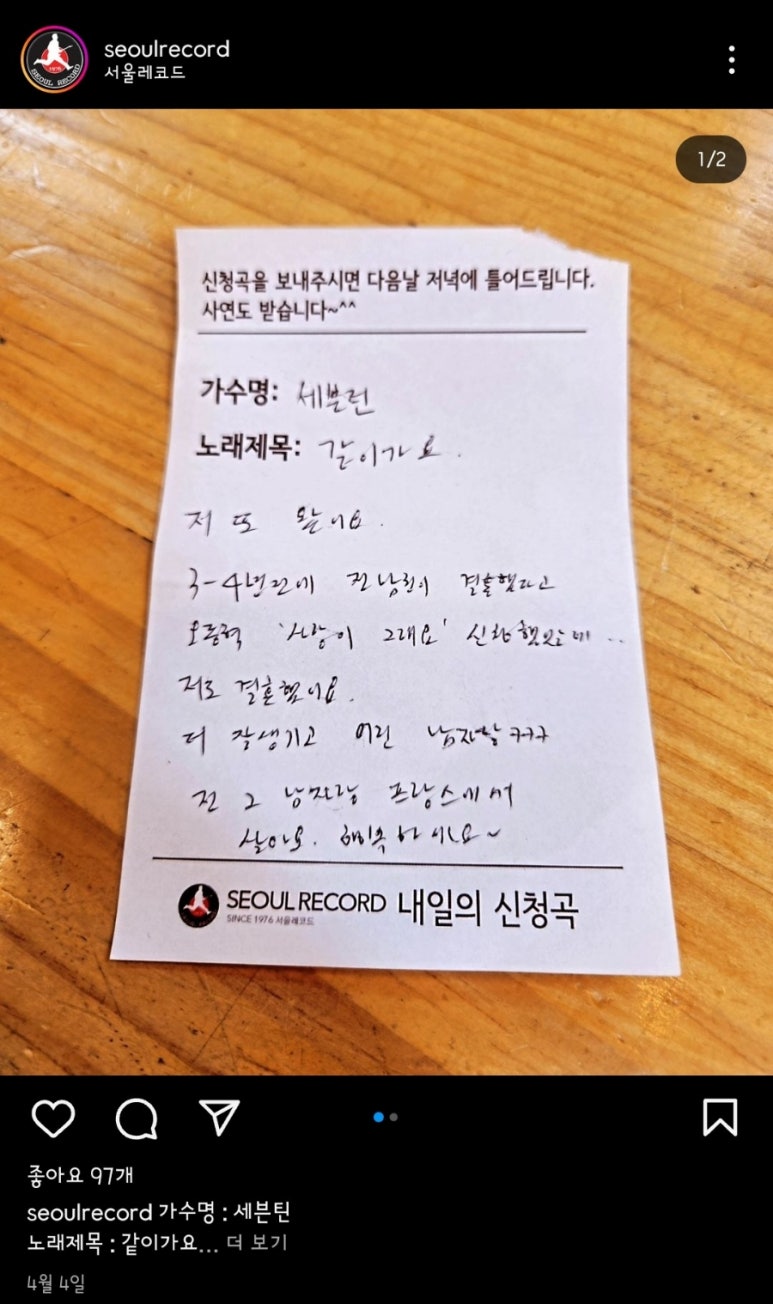 seoulrecord
서울레코드
1/2
신청곡을 보내주시면 다음날 저녁에 틀어드립니다.
사연도 받습니다~^^
가수명: 세븐틴
노래제목: 같이가요.
저 또 왔어요.
3-4년전에 전남친이 결혼했다고
오종혁 '사랑이 그래요' 신청했었는데..
저도 결혼했어요.
더 잘생기고 어린 남자랑 ㅋㅋㅋ
전 그 남자랑 프랑스에서
살아요. 행복하세요~
SEOUL RECORD 내일의 신청곡
SINCE 1976 서울레코드
좋아요 97개
seoulrecord 가수명 : 세븐틴
노래제목 : 같이가요... 더 보기
4월 4일